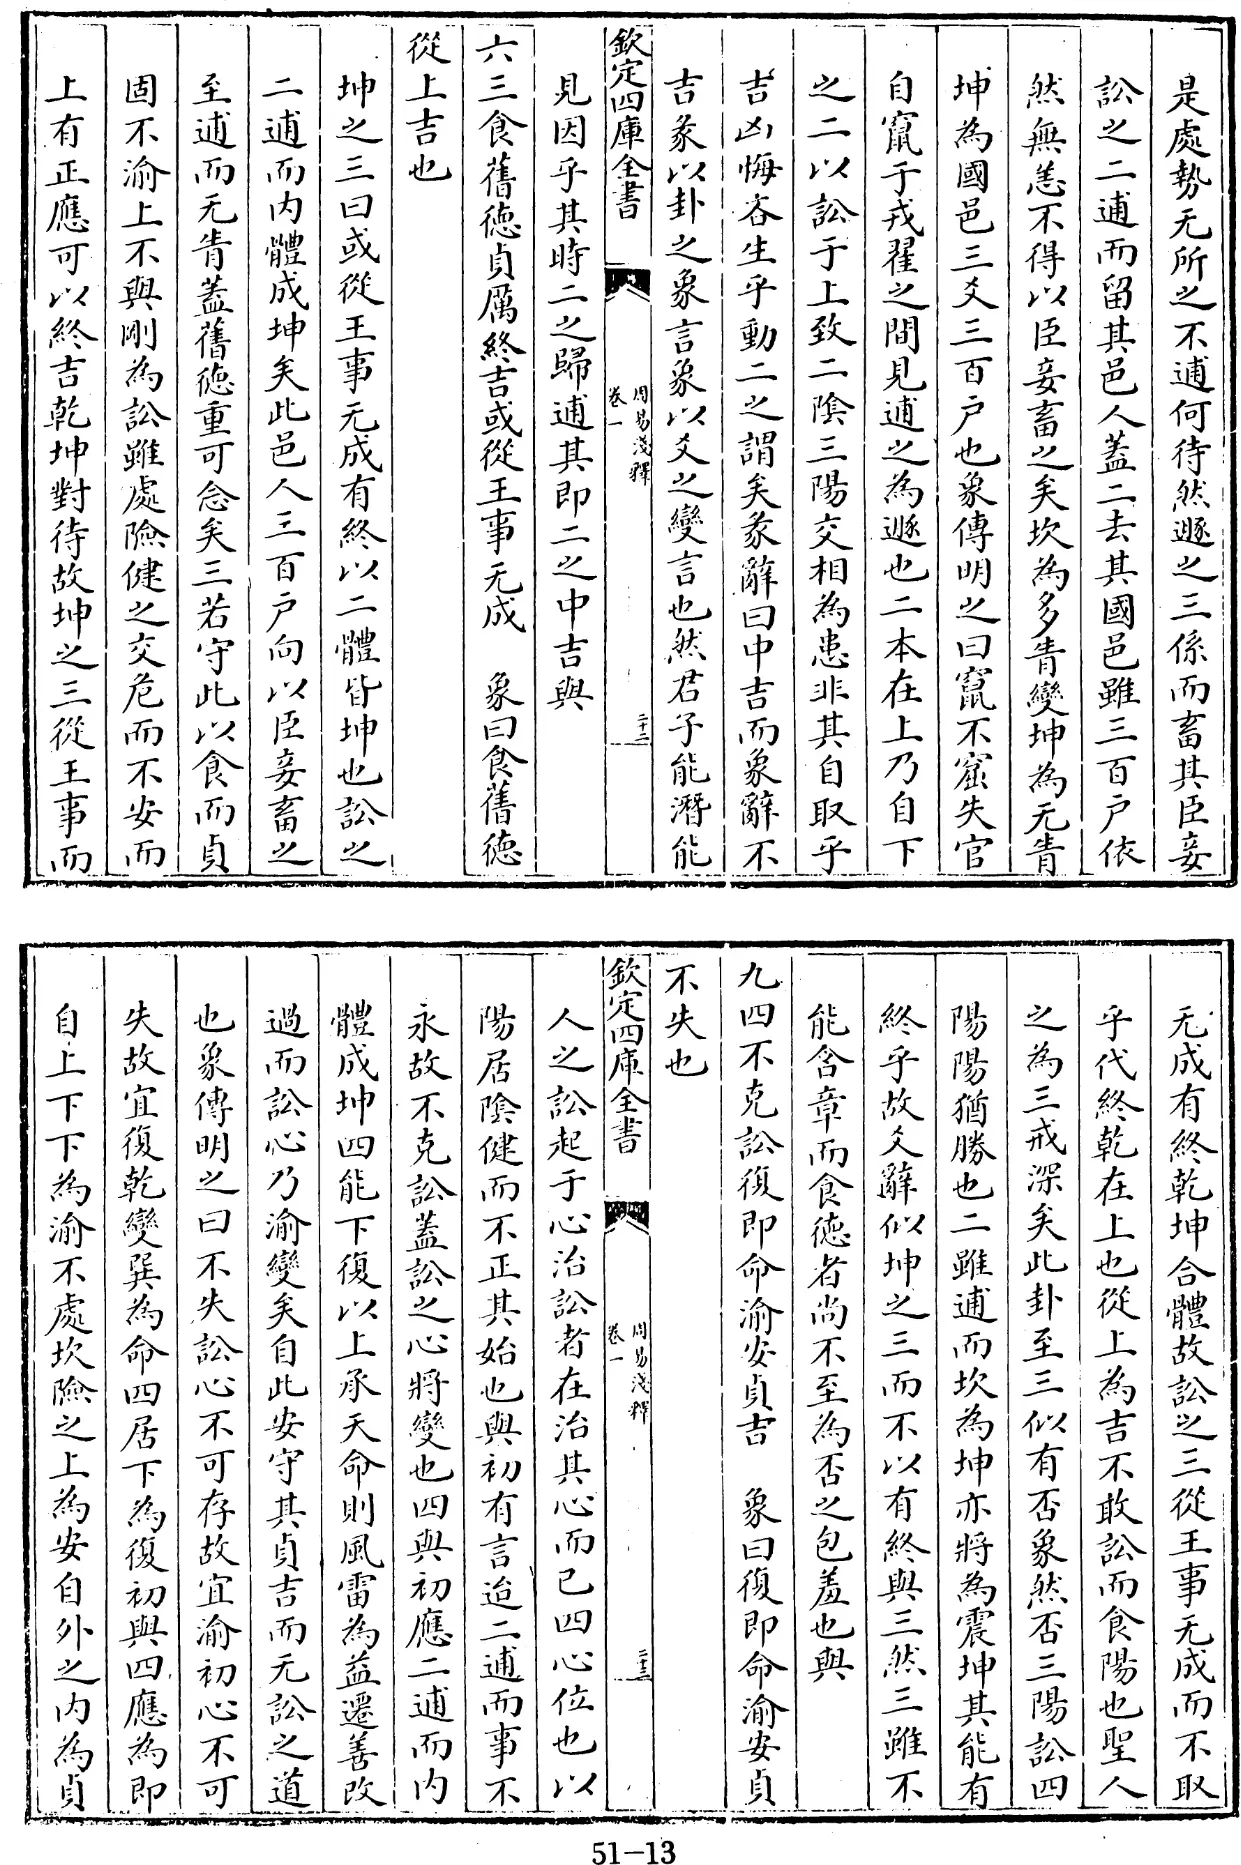 是處勢无所之不逋何待然遯之三係而畜其臣妾
訟之二逋而留其邑人蓋二去其國邑雖三百户依
然無恙不得以臣妾畜之矣坎為多眚變坤為无眚
坤為國邑三爻三百户也象傳明之曰竄不窟失官
自竄于戎翟之間見逋之為遯也二本在上乃自下
之二以訟于上致二陰三陽交相為患非其自取乎
吉凶悔吝生乎動二之謂矣彖辭曰中吉而象辭不
吉彖以卦之象言象以爻之變言也然君子能潛能
欽定四庫全書
周易淺釋
卷一
二十二
見因乎其時二之歸逋其即二之中吉與
六三食舊德貞厲終吉或從王事无成 象曰食舊德
從上吉也
坤之三曰或從王事无成有終以二體皆坤也訟之
二逋而内體成坤矣此邑人三百户向以臣妾畜之
至逋而无眚蓋舊德重可念矣三若守此以食而貞
固不渝上不與剛為訟雖處險健之交危而不安而
上有正應可以終吉乾坤對待故坤之三從王事而
无成有終乾坤合體故訟之三從王事无成而不取
乎代終乾在上也從上為吉不敢訟而食陽也聖人
之為三戒深矣此卦至三似有否象然否三陽訟四
陽陽猶勝也二雖逋而坎為坤亦將為震坤其能有
終乎故爻辭似坤之三而不以有終與三然三雖不
能含章而食德者尚不至為否之包羞也與
九四不克訟復即命渝安貞吉 象曰復即命渝安貞
不失也
欽定四庫全書
周易淺釋
卷一
二十三
人之訟起于心治訟者在治其心而已四心位也以
陽居陰健而不正其始也與初有言迨二逋而事不
永故不克訟蓋訟之心將變也四與初應二逋而内
體成坤四能下復以上承天命則風雷為益遷善改
過而訟心乃渝變矣自此安守其貞吉而无訟之道
也象傳明之曰不失訟心不可存故宜渝初心不可
失故宜復乾變巽為命四居下為復初與四應為即
自上下下為渝不處坎險之上為安自外之内為貞
51-13